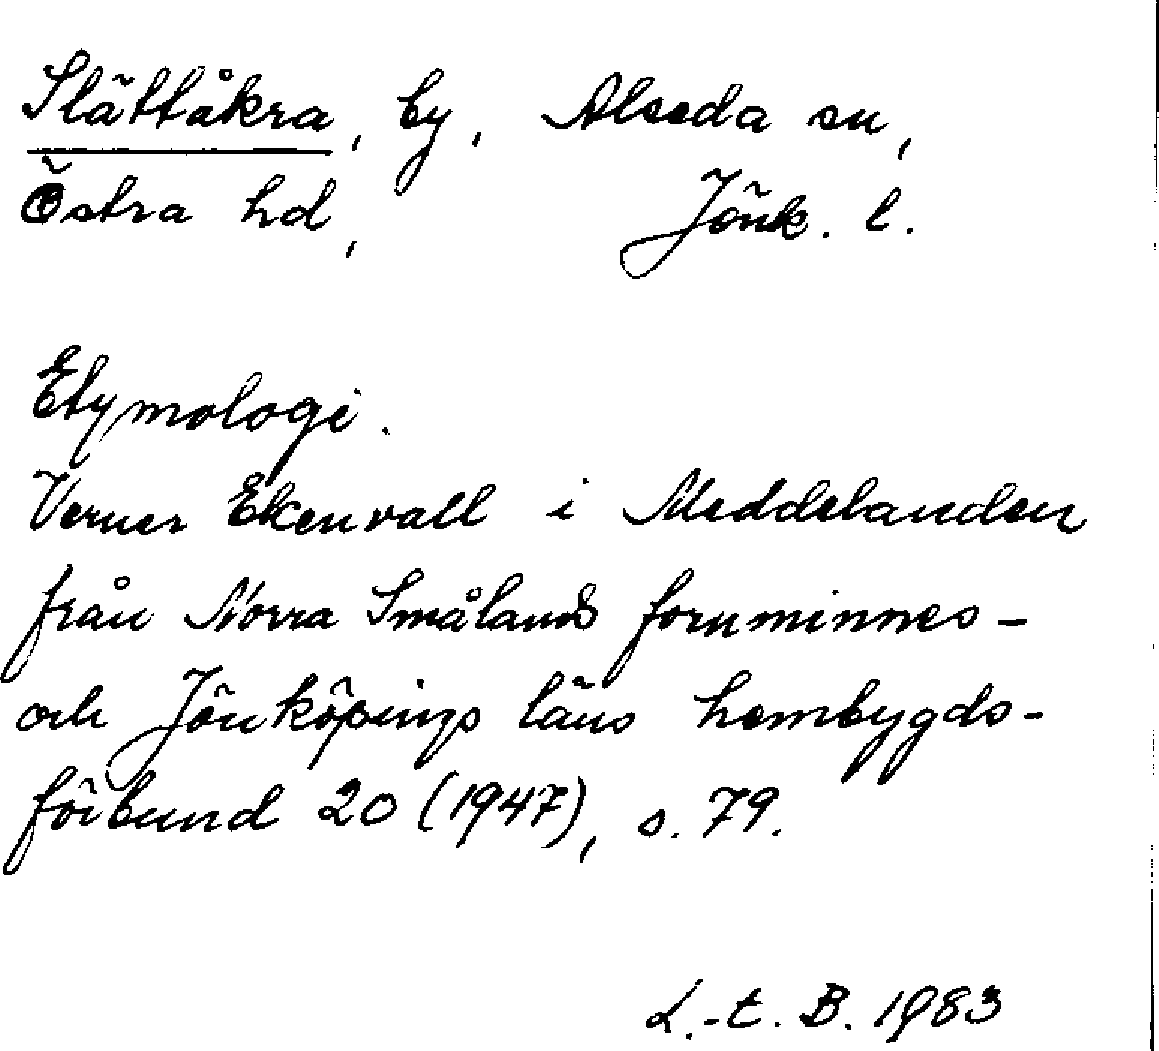 Slättåkra, by, Alseda sn,
Östra hd, Jönk. l.
Etymologi.
Verner Ekenvall i Meddelanden
från Norra Smålands fornminnes-
och Jönköpings läns hembygds-
förbund 20 (1947), s. 79.
L.-t. B. 1983